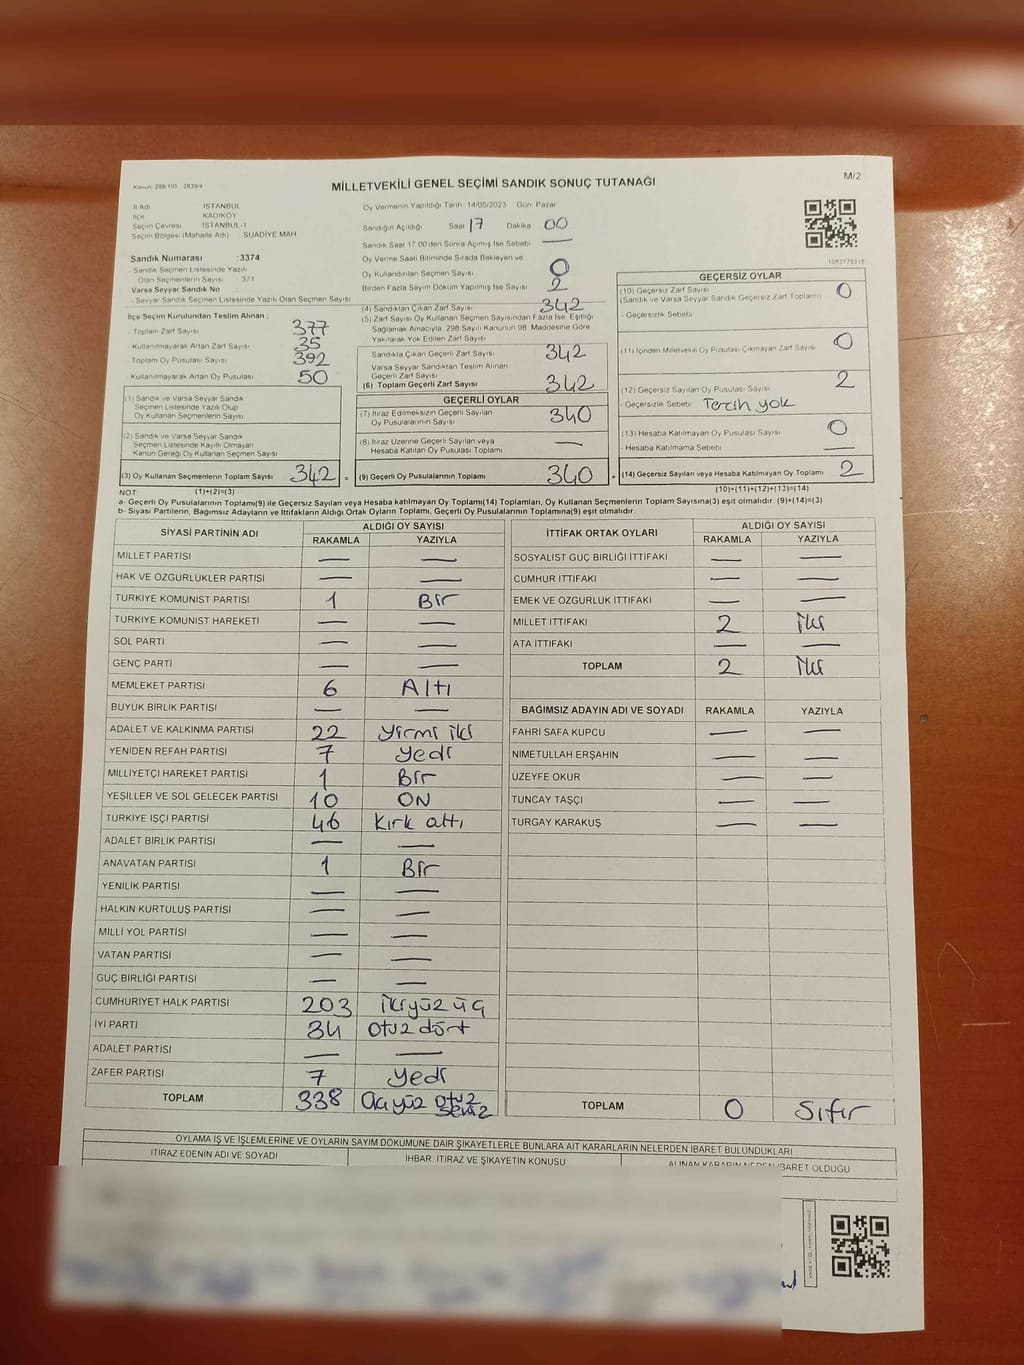 Kanun: 298/105 2839/4
MİLLETVEKİLİ GENEL SEÇİMİ SANDIK SONUÇ TUTANAĞI
M/2
İli Adı İSTANBUL
İlçe KADIKÖY
Seçim Çevresi İSTANBUL-1
Seçim Bölgesi (Mahalle Adı) SUADİYE MAH
Oy Vermenin Yapıldığı Tarih : 14/05/2023 Gün Pazar
Sandığın Açıldığı Saat 17 Dakika 00
Sandık Saat 17:00'den Sonra Açılmış İse Sebebi —
Oy Verme Saati Bitiminde Sırada Bekleyen ve
Oy Kullandırılan Seçmen Sayısı 0
Birden Fazla Sayım Döküm Yapılmış İse Sayısı 2
Sandık Numarası :3374
- Sandık Seçmen Listesinde Yazılı
Olan Seçmenlerin Sayısı 371
Varsa Seyyar Sandık No :
- Seyyar Sandık Seçmen Listesinde Yazılı Olan Seçmen Sayısı
İlçe Seçim Kurulundan Teslim Alınan ;
- Toplam Zarf Sayısı 377
- Kullanılmayarak Artan Zarf Sayısı 35
Toplam Oy Pusulası Sayısı 392
- Kullanılmayarak Artan Oy Pusulası 50
(1) Sandık ve Varsa Seyyar Sandık
Seçmen Listesinde Yazılı Olup
Oy Kullanan Seçmenlerin Sayısı
(2) Sandık ve Varsa Seyyar Sandık
Seçmen Listesinde Kayıtlı Olmayan
Kanun Gereği Oy Kullanan Seçmen Sayısı
(3) Oy Kullanan Seçmenlerin Toplam Sayısı 342 =
(4) Sandıktan Çıkan Zarf Sayısı 342
(5) Zarf Sayısı Oy Kullanan Seçmen Sayısından Fazla İse, Eşitliği
Sağlamak Amacıyla, 298 Sayılı Kanunun 98. Maddesine Göre
Yakılarak Yok Edilen Zarf Sayısı
Sandıkta Çıkan Geçerli Zarf Sayısı 342
Varsa Seyyar Sandıktan Teslim Alınan
Geçerli Zarf Sayısı
(6) Toplam Geçerli Zarf Sayısı 342
GEÇERLİ OYLAR
(7) İtiraz Edilmeksizin Geçerli Sayılan
Oy Pusulalarının Sayısı 340
(8) İtiraz Üzerine Geçerli Sayılan veya
Hesaba Katılan Oy Pusulası Toplamı —
(9) Geçerli Oy Pusulalarının Toplamı 340
1093775315
GEÇERSİZ OYLAR
(10) Geçersiz Zarf Sayısı 0
(Sandık ve Varsa Seyyar Sandık Geçersiz Zarf Toplamı)
- Geçersizlik Sebebi :
(11) İçinden Milletvekili Oy Pusulası Çıkmayan Zarf Sayısı 0
(12) Geçersiz Sayılan Oy Pusulası Sayısı 2
- Geçersizlik Sebebi : Tercih yok
(13) Hesaba Katılmayan Oy Pusulası Sayısı 0
- Hesaba Katılmama Sebebi : —
(14) Geçersiz Sayılan veya Hesaba Katılmayan Oy Toplamı 2
NOT (1)+(2)=(3) (10)+(11)+(12)+(13)=(14)
a- Geçerli Oy Pusulalarının Toplamı(9) ile Geçersiz Sayılan veya Hesaba katılmayan Oy Toplamı(14) Toplamları, Oy Kullanan Seçmenlerin Toplam Sayısına(3) eşit olmalıdır. (9)+(14)=(3)
b- Siyasi Partilerin, Bağımsız Adayların ve İttifakların Aldığı Ortak Oyların Toplamı, Geçerli Oy Pusulalarının Toplamına(9) eşit olmalıdır.
SİYASİ PARTİNİN ADI ALDIĞI OY SAYISI
RAKAMLA YAZIYLA
MİLLET PARTİSİ — —
HAK VE ÖZGÜRLÜKLER PARTİSİ — —
TÜRKİYE KOMÜNİST PARTİSİ 1 Bir
TÜRKİYE KOMÜNİST HAREKETİ — —
SOL PARTİ — —
GENÇ PARTİ — —
MEMLEKET PARTİSİ 6 Altı
BÜYÜK BİRLİK PARTİSİ — —
ADALET VE KALKINMA PARTİSİ 22 Yirmi iki
YENİDEN REFAH PARTİSİ 7 Yedi
MİLLİYETÇİ HAREKET PARTİSİ 1 Bir
YEŞİLLER VE SOL GELECEK PARTİSİ 10 ON
TÜRKİYE İŞÇİ PARTİSİ 46 Kırk altı
ADALET BİRLİK PARTİSİ — —
ANAVATAN PARTİSİ 1 Bir
YENİLİK PARTİSİ — —
HALKIN KURTULUŞ PARTİSİ — —
MİLLİ YOL PARTİSİ — —
VATAN PARTİSİ — —
GÜÇ BİRLİĞİ PARTİSİ — —
CUMHURİYET HALK PARTİSİ 203 İkiyüz üç
İYİ PARTİ 34 Otuz dört
ADALET PARTİSİ — —
ZAFER PARTİSİ 7 Yedi
TOPLAM 338 Üçyüz otuz sekiz
İTTİFAK ORTAK OYLARI ALDIĞI OY SAYISI
RAKAMLA YAZIYLA
SOSYALİST GÜÇ BİRLİĞİ İTTİFAKI — —
CUMHUR İTTİFAKI — —
EMEK VE ÖZGÜRLÜK İTTİFAKI — —
MİLLET İTTİFAKI 2 İki
ATA İTTİFAKI — —
TOPLAM 2 İki
BAĞIMSIZ ADAYIN ADI VE SOYADI RAKAMLA YAZIYLA
FAHRİ SAFA KUPCU — —
NİMETULLAH ERŞAHİN — —
UZEYFE OKUR — —
TUNCAY TAŞÇI — —
TURGAY KARAKUŞ — —
TOPLAM 0 Sıfır
OYLAMA İŞ VE İŞLEMLERİNE VE OYLARIN SAYIM DÖKÜMÜNE DAİR ŞİKAYETLERLE BUNLARA AİT KARARLARIN NELERDEN İBARET BULUNDUKLARI
İTİRAZ EDENİN ADI VE SOYADI İHBAR, İTİRAZ VE ŞİKAYETİN KONUSU ALINAN KARARIN NEDEN İBARET OLDUĞU